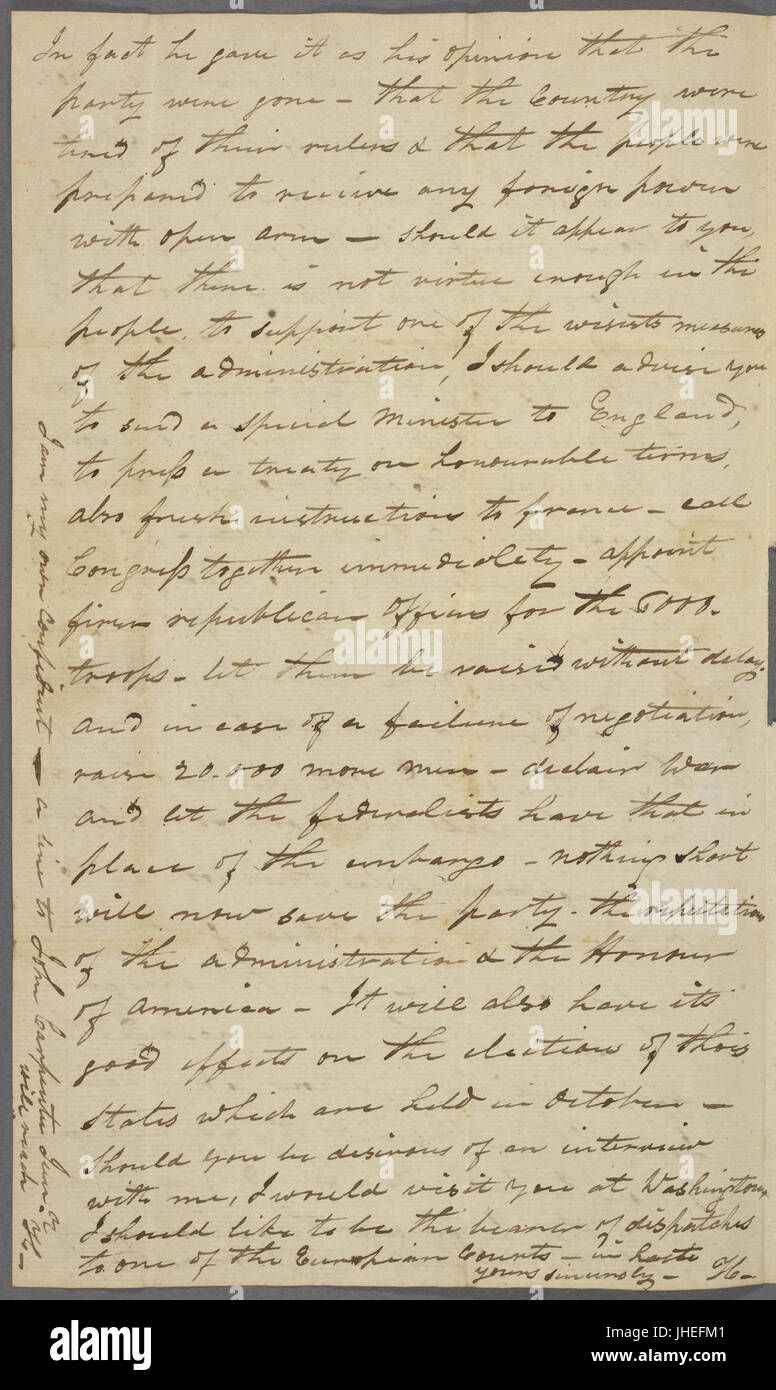 In fact he gave it as his opinion that the
party were gone – that the Country were
tired of their rulers & that the people were
prepared to receive any foreign power
with open arm – should it appear to you,
that there is not virtue enough in the
people, to support one of the wisists measures
of the administration, I should advise you
to send a special Minister to England,
to press a treaty on honourable terms,
also fresh instructions to france – call
Congress together immediately – appoint
firm republican Officers for the 6000.
troops – let them be raised without delay.
and in case of a failure of negotiation,
raise 20.000 more men – declair War
and let the federalists have that in
place of the embargo – nothing short
will now save the party – the reputation
of the administration & the Honour
of America – It will also have its
good effects on the election of thois
States which are held in October –
Should you be desirous of an interview
with me, I would visit you at Washington,
I should like to be the bearer of dispatches
to one of the European Courts – in haste
yours sincerely – H–
I am my own Confident – a line to John Carpenter Junr.
will reach H–
alamy
alamy
Image ID: JHEFM1
www.alamy.com